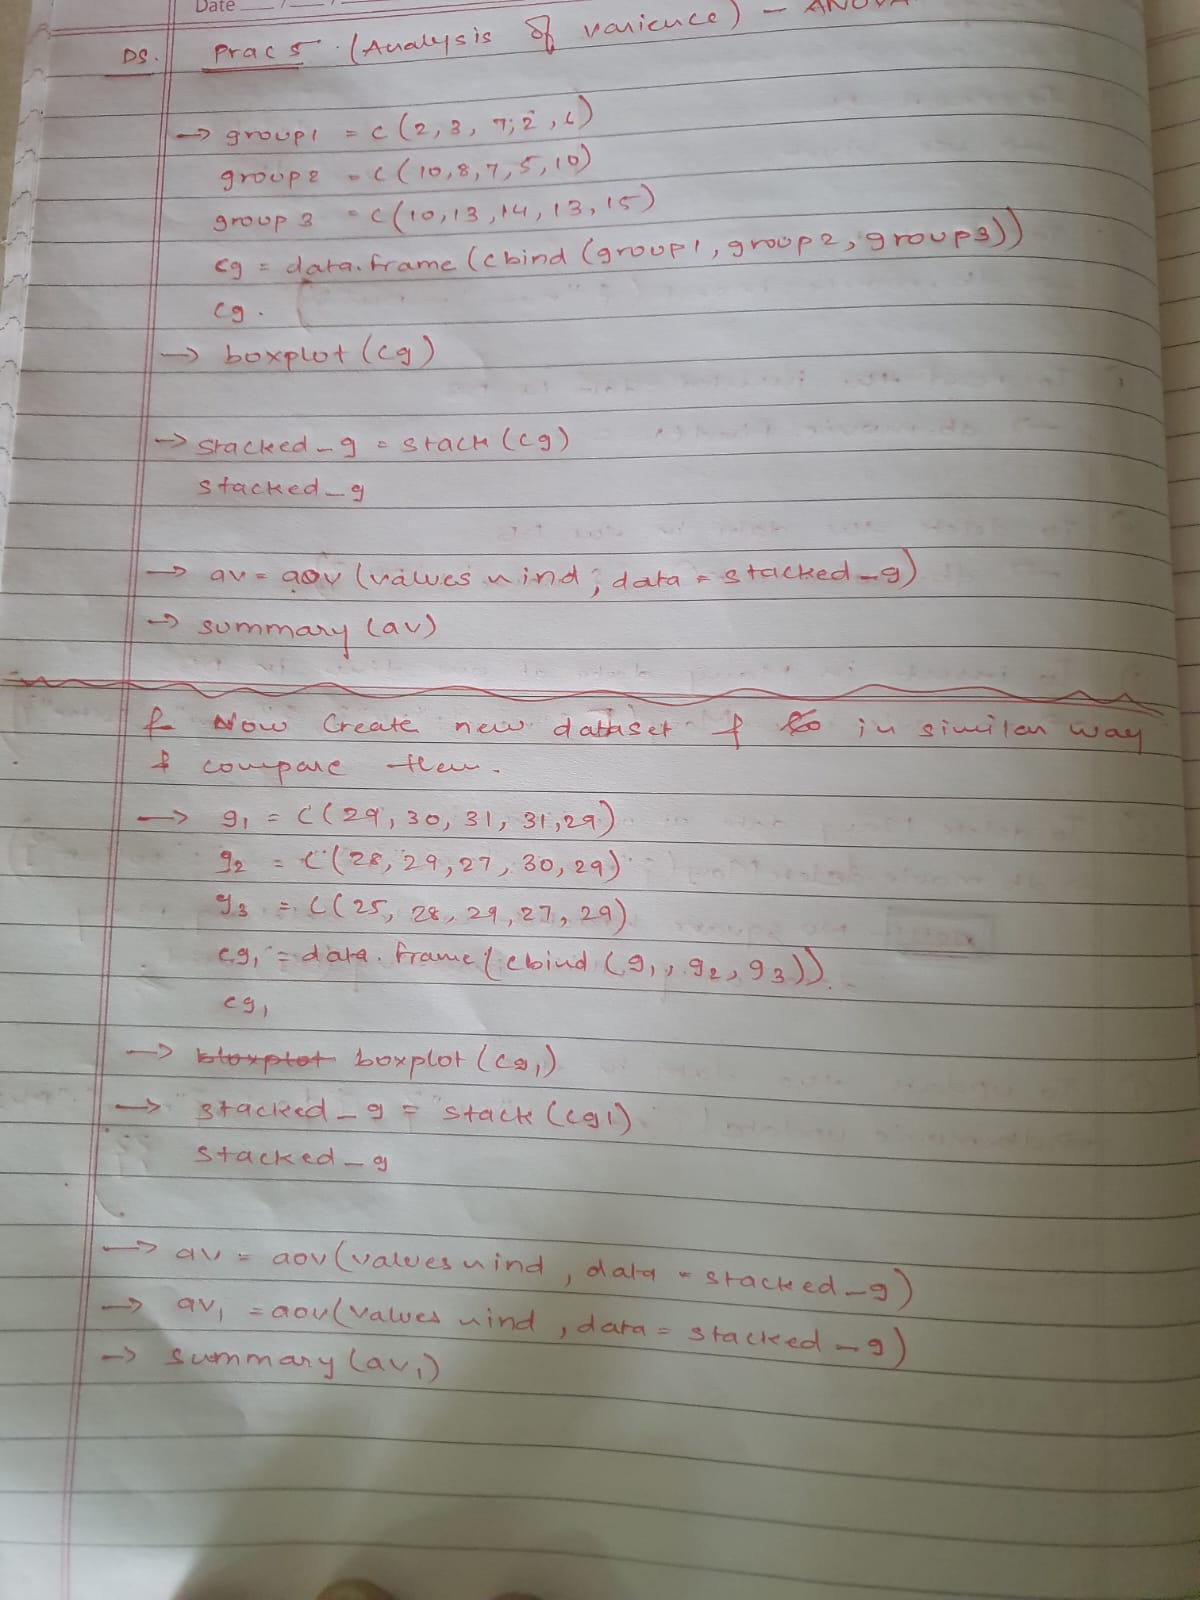 Date
DS. Prac 5 (Analysis of varience) - ANOVA
→ group1 = c(2, 3, 7, 2, 6)
group2 = c(10,8,7,5,10)
group 3 = c(10,13,14,13,15)
cg = data.frame(cbind(group1, group2, group3))
cg.
→ boxplot(cg)
→ stacked_g = stack(cg)
stacked_g
→ av = aov(values ~ ind, data = stacked_g)
→ summary(av)
Now Create new dataset & in similar way
& compare them.
→ g1 = c(29, 30, 31, 31,29)
g2 = c(28, 29, 27, 30, 29)
g3 = c(25, 28, 29, 27, 29)
cg1 = data.frame(cbind(g1, g2, g3)).
cg1
→ bloxplot boxplot(cg1)
→ stacked_g = stack(cg1)
stacked_g
→ av = aov(values ~ ind, data = stacked_g)
→ av1 = aov(values ~ ind, data = stacked_g)
→ summary(av1)